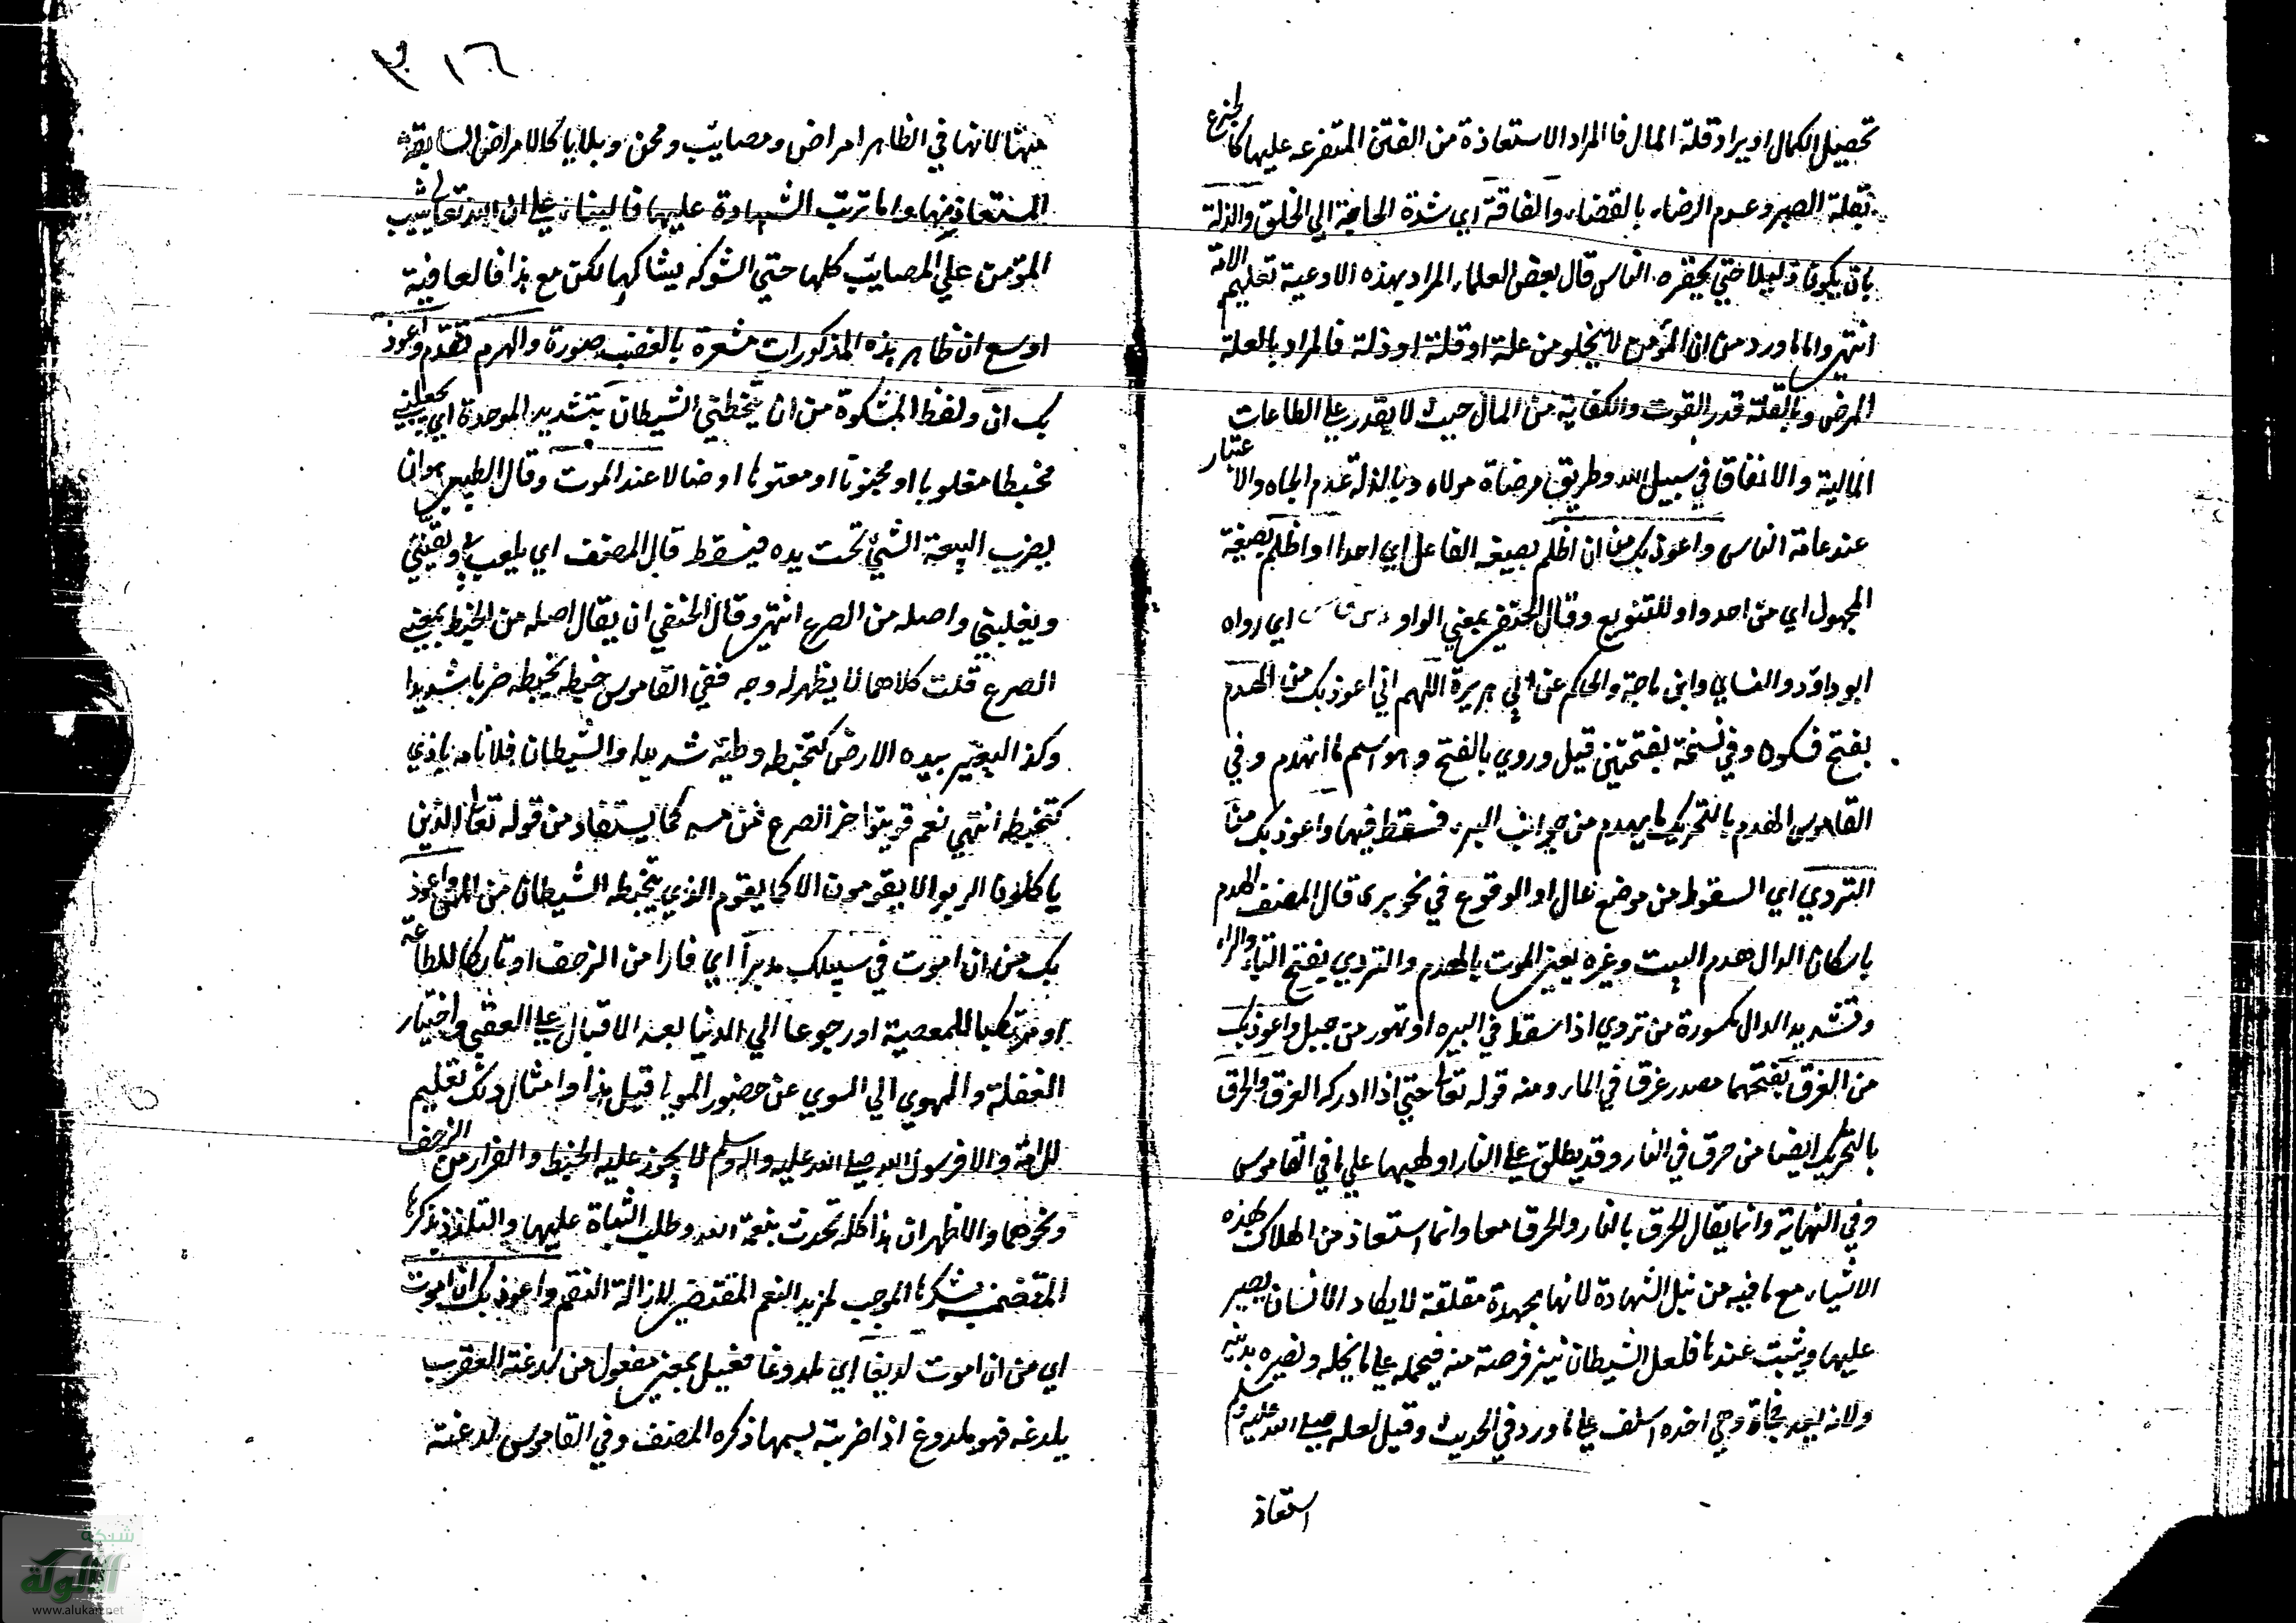 تحصيل الكمال او يراد قلة المال فالمراد الاستعاذة من الفتن المتفرعه عليها كالجزع
بقلة الصبر وعدم الرضاء بالقضاء والفاقة اي شدة الحاجة الي الخلق والذلة
بان يكون ذليلا حتي يحقره الناس قال بعض العلماء المراد بهذه الادعية تعليم الامة
انتهي واما ما ورد من ان المؤمن لا يخلو من علة او قلة او ذلة فالمراد بالعلة
المرض وبالقلة قدر القوت والكفاية من المال حيث لا يقدر علي الطاعات
المالية والانفاق في سبيل الله وطريق مرضاة مولاه وبالذلة عدم الجاه والاعتبار
عند عامة الناس واعوذ بك من ان اظلم بصيغة الفاعل اي احدا او اظلم بصيغة
المجهول اي من احد واو للتنويع وقال الحنفي بمعني الواو د س ق مس اي رواه
ابو داود والنسائي وابن ماجة والحاكم عن ابي هريرة اللهم اني اعوذ بك من الهدم
بفتح فسكون وفي نسخة بفتحتين قيل وروي بالفتح وهو اسم ما انهدم وفي
القاموس الهدم بالتحريك ما يهدم من جوانب البير فسقط فيها واعوذ بك من
التردي اي السقوط من موضع عال او الوقوع في نحو بير قال المصنف الهدم
باسكان الدال هدم البيت وغيره يعني الموت بالهدم والتردي بفتح التاء والراء
وتشديد الدال مكسورة من تردي اذا سقط في البير او تهور من جبل واعوذ بك
من الغرق بفتحهما مصدر غرق في الماء ومنه قوله تعالي حتي اذا ادركه الغرق والحرق
بالتحريك ايضا من حرق في النار وقد يطلق علي النار او لهبها علي ما في القاموس
وفي النهاية وانما يقال الحرق بالنار والحرق معا وانما استعاذ من الهلاك بهذه
الاشياء مع ما فيه من نيل الشهادة لانها مجهدة مقلقة لا يكاد الانسان يصبر
عليها ويثبت عندها فلعل الشيطان ينتهز فرصة منه فيحمله علي ما يخله ويضره بدينه
ولانه يعد فجاة وهي اخذه اسف علي ما ورد في الحديث وقيل لعله صلي الله عليه وسلم
استعاذ
٣١٦
منها لانها في الظاهر امراض ومصايب ومحن وبلايا كالامراض السابقة
المستعاذ منها واما ترتب الشهادة عليها فالبناء علي ان الله تعالي يثيب
المؤمن علي المصايب كلها حتي الشوكه يشاكها لكن مع هذا فالعافية
اوسع ان ظاهر هذه المذكورات مشعرة بالغضب صورة والهرم تقدم واعوذ
بك ان ولفظ المشكوة من ان يتخبطني الشيطان بتشديد الموحدة اي يجعلني
مخبطا مغلوبا او مجنونا او معتوها او ضالا عند الموت وقال الطيبي هو ان
يضرب البيعة الشئ تحت يده فيسقط قال المصنف اي يلعب بي ويفتنني
ويغلبني واصله من الصرع انتهي وقال الحنفي ان يقال اصله من الخبط بمعني
الصرع قلت كلاهما لا يظهر له وجه ففي القاموس خبطه يخبطه ضربا شديدا
وكذا البعير بيده الارض كتخبطه وطئه شديدا والشيطان فلانا مسه باذي
كتخبطه انتهي نعم قد يتواخر الصرع من مسه كما يستفاد من قوله تعالي الذين
ياكلون الربوا لا يقومون الا كما يقوم الذي يتخبطه الشيطان من المس واعوذ
بك من ان اموت في سبيلك مدبرا اي فارا من الزحف او تاركا للطاعة
او مرتكبا للمعصية او رجوعا الي الدنيا بعد الاقبال علي العقبي واختيار
الغفلة والهوي الي السوي عن حضور المولي قيل هذا وامثال ذلك تعليم
للامة والا فرسول الله صلي الله عليه واله وسلم لا يجوز عليه الخبط والفرار من الزحف
ونحوهما والاظهر ان هذا كله تحدث بنعمة الله وطلب الثبات عليها والتلذذ بذكرها
المتضمن بشكرها الموجب لمزيد النعم المقتضي لازالة النقم واعوذ بك ان اموت
اي من ان اموت لديغا اي ملدوغا فعيل بمعني مفعول من لدغته العقرب
يلدغه فهو ملدوغ اذا ضربته بسمها ذكره المصنف وفي القاموس لدغته
شبكة
الألوكة
www.alukah.net